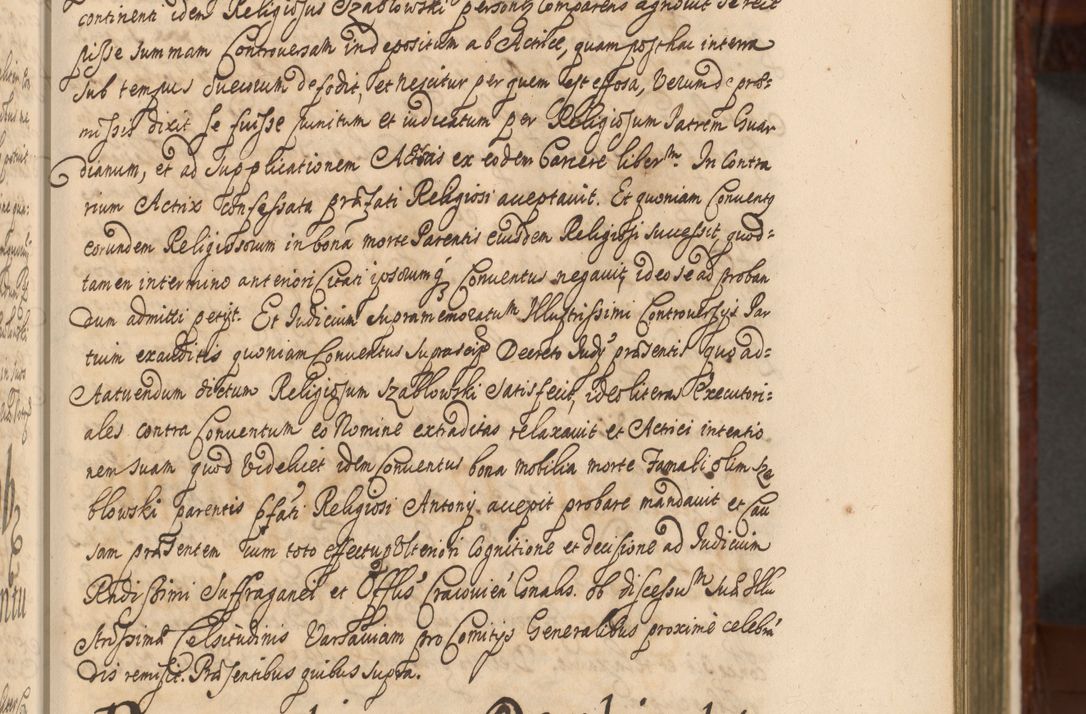 continenti idem Religiosus Szablowski personr comparens agnovit se rece
pisse summam Controversam in depositum ab Actrice, quam posthac in terra
sub tempus Suecicum defodit, et nescitur per quem est effosa, Verum de præ=
missis dixit se fuisse punitum et iudicatum per Religiosum Patrem Guar
dianum, et ad supplicationem Actricis ex eodem Carcere liber tm. In Contra
rium Actrix confessata præfati Religiosi acceptavit. Et quoniam Conventus
eorundem Religiosorum in bona morte Parentis eiusdem Religiosi successit, quod=
tamen in termino anteriori Citati ipsorumq Conventus negavit, ideo se ad proban
dum admitti petijt. Et Iudicium supramemoratum Illustrissimi Controversijs Par
tium exauditis quoniam Conventus suprascip Decreto Iudy præsenti quo ad=
statuendum dictum Religiosum Szablowski satisfecit, ideo literas Executori=
ales contra Conventum eo Nomine extraditas relaxavit et Actrici intentio
nem suam quod videlicet idem Conventus bona mobilia morte Famati olim Sza
blowski parentis pfati Religiosi Antonij accepit probare mandavit et Cau
sam præsentem cum toto effectu Ulteriori Cognitione et decisione ad Iudicium
Rndissimi Suffraganei et Offlis Cracovien Conalas. ob discessum suæ Illu
strissimæ Celsitudinis Varsaviam pro Comitys Generalibus proxime celebran
dis remisit. Præsentibus quibus supra.